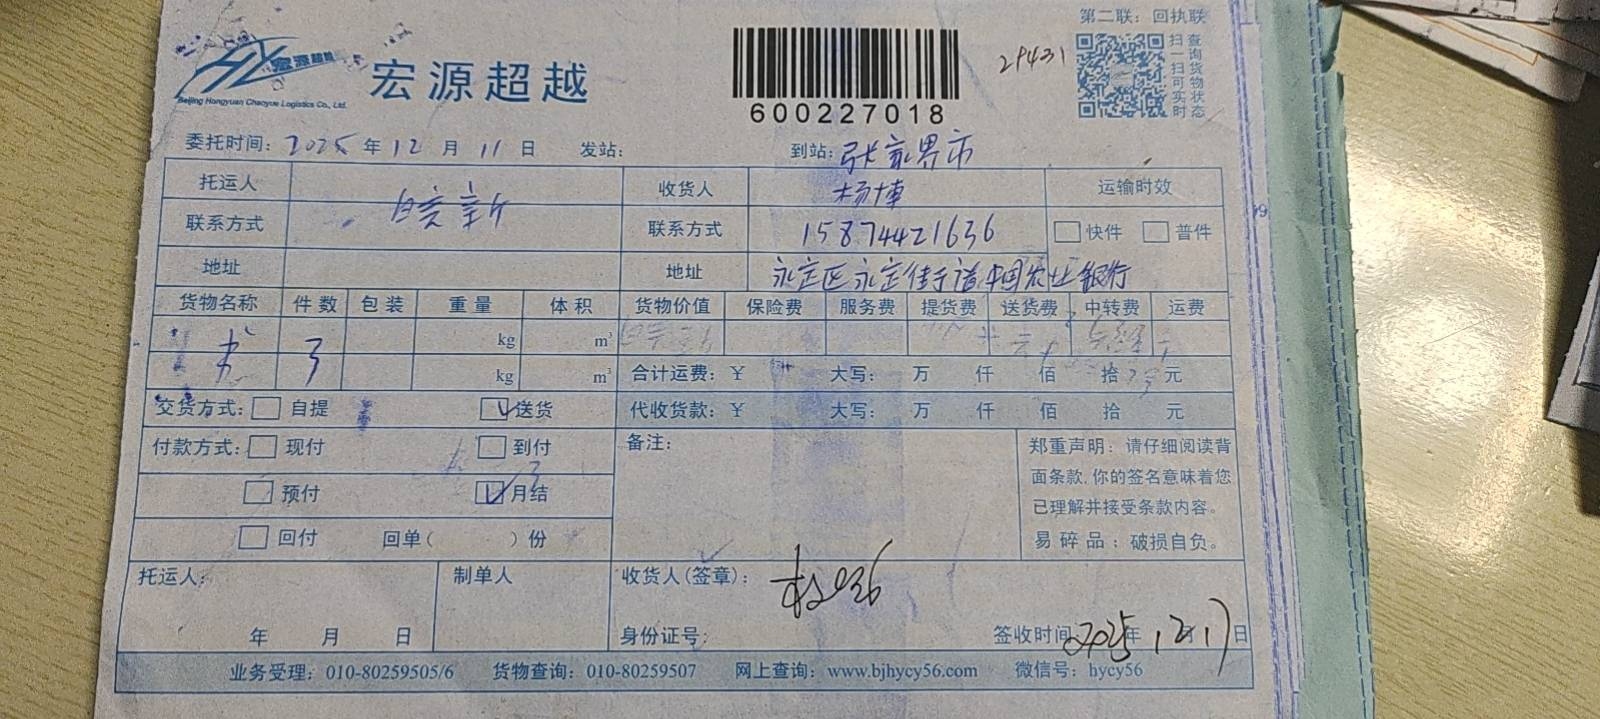 第二联：回执联
宏源超越
Beijing Hongyuan Chaoyue Logistics Co., Ltd.
宏源超越
600227018
29431
扫一扫可实时
查询货物状态
委托时间：2025年12月11日 发站： 到站：张家界市
托运人 皓新 收货人 杨博 运输时效
联系方式 联系方式 15874421636 快件 普件
地址 地址 永定区永定街道中国农业银行
货物名称 件数 包装 重量 体积 货物价值 保险费 服务费 提货费 送货费 中转费 运费
书 3 kg m³
kg m³ 合计运费：¥ 大写： 万 仟 佰 拾 元
交货方式： 自提 送货 代收货款：¥ 大写： 万 仟 佰 拾 元
付款方式： 现付 到付 备注：
预付 月结
回付 回单（ ）份
郑重声明：请仔细阅读背
面条款，你的签名意味着您
已理解并接受条款内容。
易碎品：破损自负。
托运人： 制单人 收货人（签章）：
年 月 日 身份证号： 签收时间 2025年12月17日
业务受理：010-80259505/6 货物查询：010-80259507 网上查询：www.bjhycy56.com 微信号：hycy56